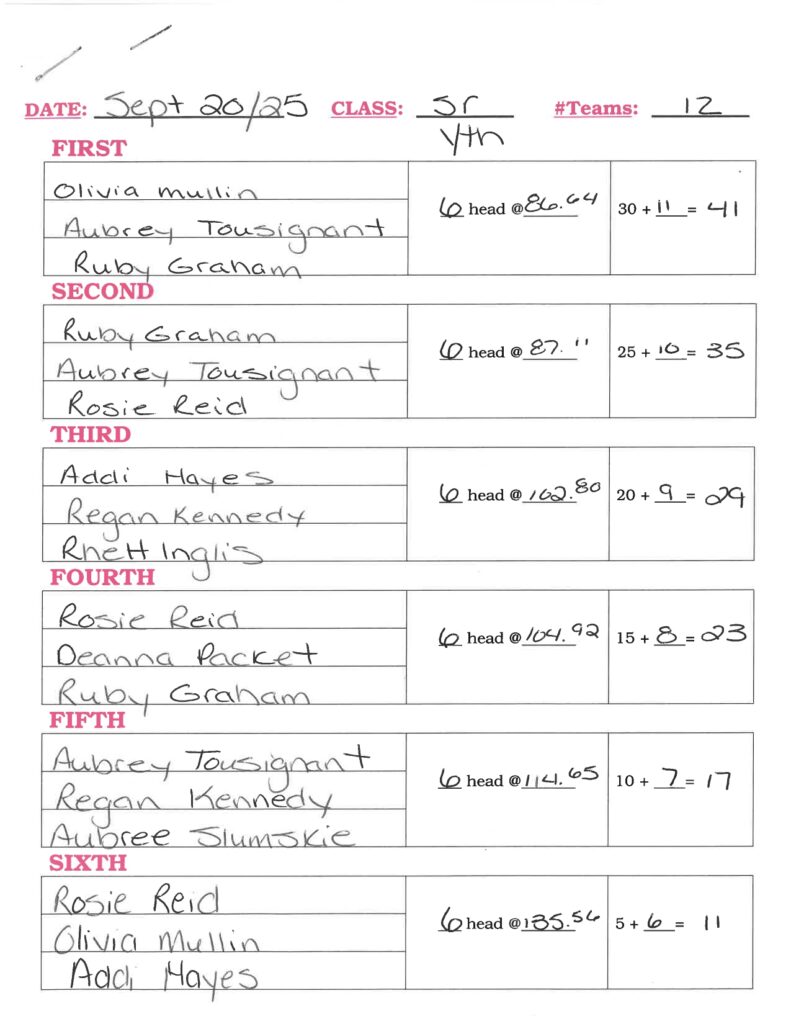 DATE: Sept 20/25 CLASS: Sr Yth #Teams: 12
FIRST
Olivia Mullin
Aubrey Tousignant
Ruby Graham
6 head @ 86.64
30 + 11 = 41
SECOND
Ruby Graham
Aubrey Tousignant
Rosie Reid
6 head @ 87.11
25 + 10 = 35
THIRD
Addi Hayes
Regan Kennedy
Rhett Inglis
6 head @ 102.80
20 + 9 = 29
FOURTH
Rosie Reid
Deanna Packet
Ruby Graham
6 head @ 104.92
15 + 8 = 23
FIFTH
Aubrey Tousignant
Regan Kennedy
Aubree Slumskie
6 head @ 114.65
10 + 7 = 17
SIXTH
Rosie Reid
Olivia Mullin
Addi Hayes
6 head @ 135.56
5 + 6 = 11